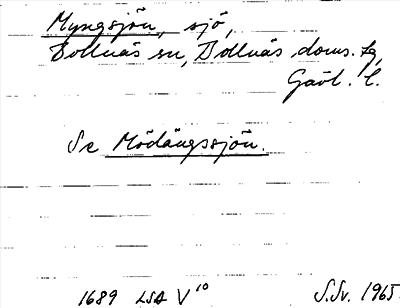 Myngsjön, sjö,
Bollnäs sn, Bollnäs doms. tg,
Gävl. l.
Se Mödängssjön.
1689 LSA V¹⁰ S.Sv. 1965